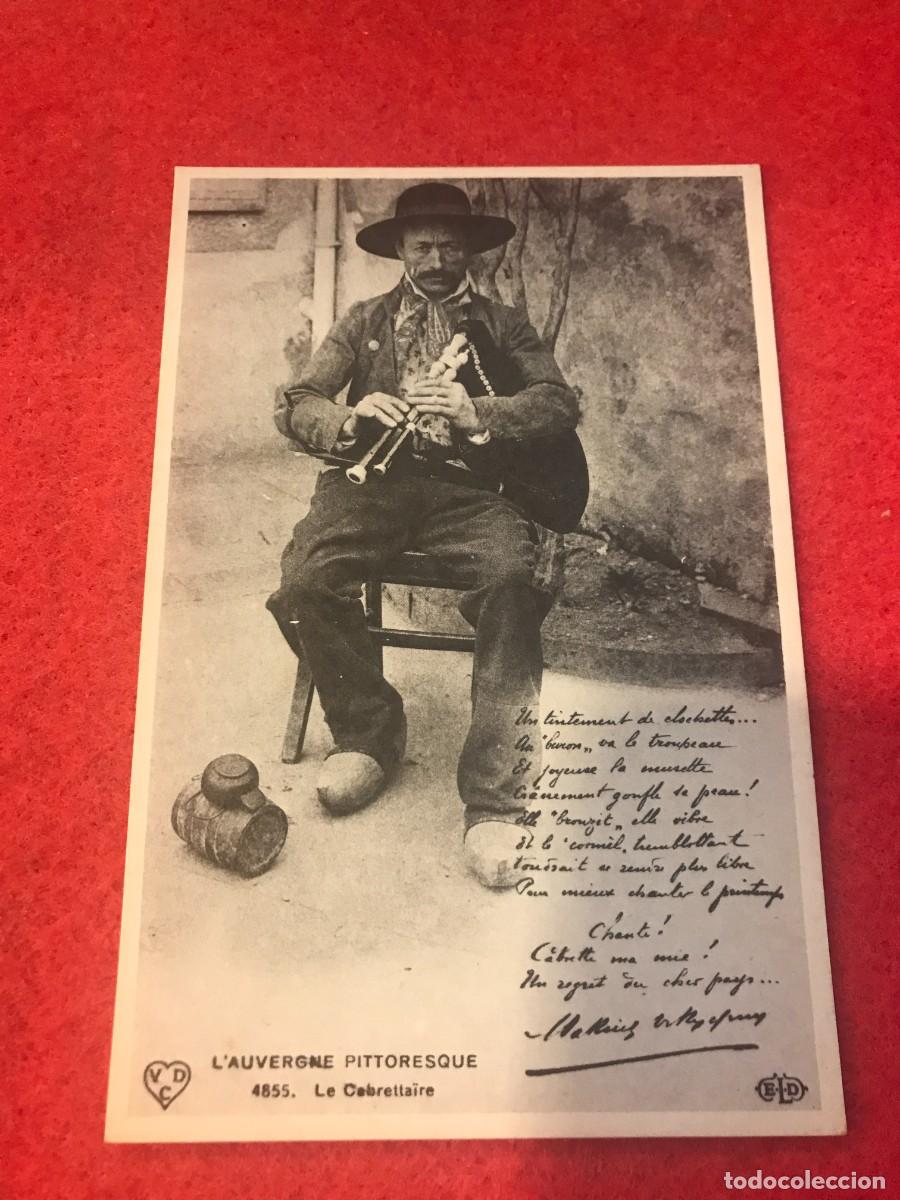 Un tintement de clochettes...
Au "buron" va le troupeau
Et joyeuse la musette
Crânement gonfle sa peau!
Elle "brounzit", elle vibre
Et le "cornièl" tremblottant
Voudrait se rendre plus libre
Pour mieux chanter le printemps
Chante!
Câbrette ma mie!
Un regret du cher pays...
VDC
L'AUVERGNE PITTORESQUE
4855. Le Cabrettaïre
ELD
todocoleccion